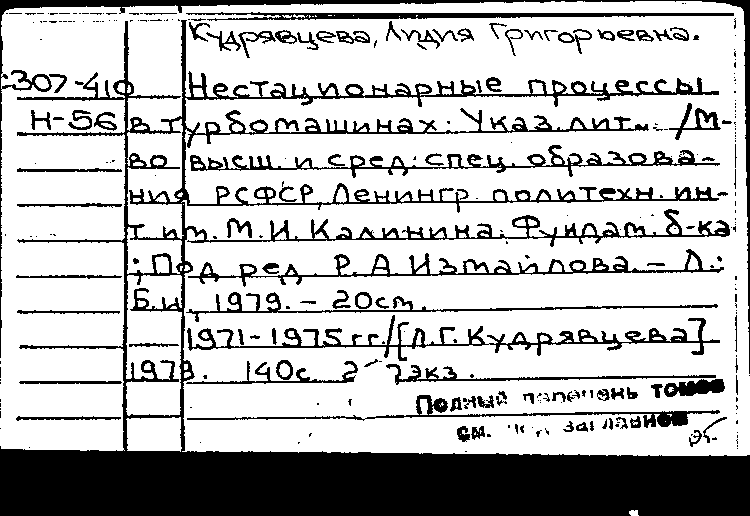 Кудрявцева, Лидия Григорьевна.
:307-410 Нестационарные процессы
Н-56 в турбомашинах: Указ. лит. /М-
во высш. и сред. спец. образова-
ния РСФСР, Ленингр. политехн. ин-
т им. М.И. Калинина. Фундам. б-ка
; Под ред. Р. А Измайлова. - Л.:
Б.и, 1979. - 20см.
1971-1975 гг/[Л.Г. Кудрявцева]
1979. 140с. экз.
Полный перечень томов
см. заглавной